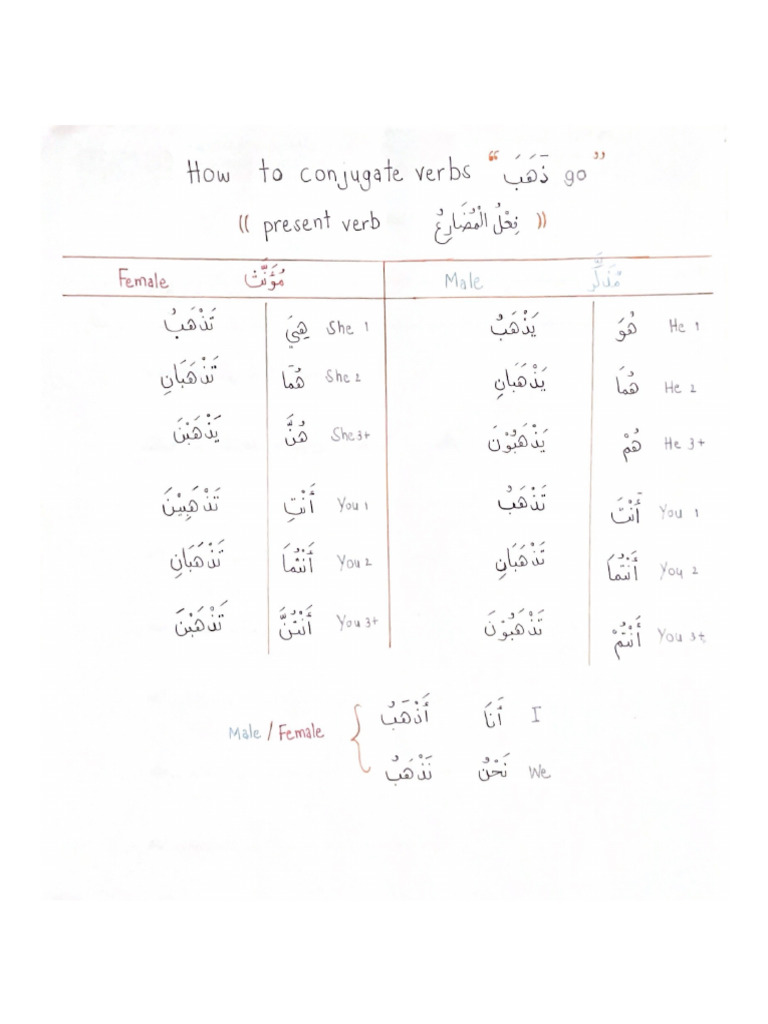 How to conjugate verbs “ذَهَبَ go”
(( present verb فِعْلُ الْمُضَارِعُ ))
Female مُؤَنَّث Male مُذَكَّر
تَذْهَبُ هِيَ She 1 يَذْهَبُ هُوَ He 1
تَذْهَبَانِ هُمَا She 2 يَذْهَبَانِ هُمَا He 2
يَذْهَبْنَ هُنَّ She 3+ يَذْهَبُوْنَ هُمْ He 3+
تَذْهَبِيْنَ أَنْتِ You 1 تَذْهَبُ أَنْتَ You 1
تَذْهَبَانِ أَنْتُمَا You 2 تَذْهَبَانِ أَنْتُمَا You 2
تَذْهَبْنَ أَنْتُنَّ You 3+ تَذْهَبُوْنَ أَنْتُمْ You 3+
أَذْهَبُ أَنَا I
Male / Female
نَذْهَبُ نَحْنُ We